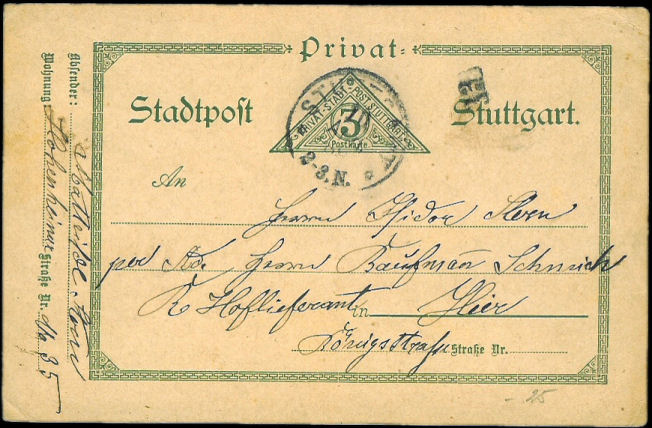 Privat-
Stadtpost Stuttgart.
PRIVAT-STADT-POST STUTTGART
3
Postkarte
2-3.N.
An
Herrn Isidor Stern
per Adr. Herrn Kaufmann
K. Hoflieferant in Hier
Königsstraße Straße Nr.
Absender:
Wohnung: Hohenheimer Straße Nr. 35
25